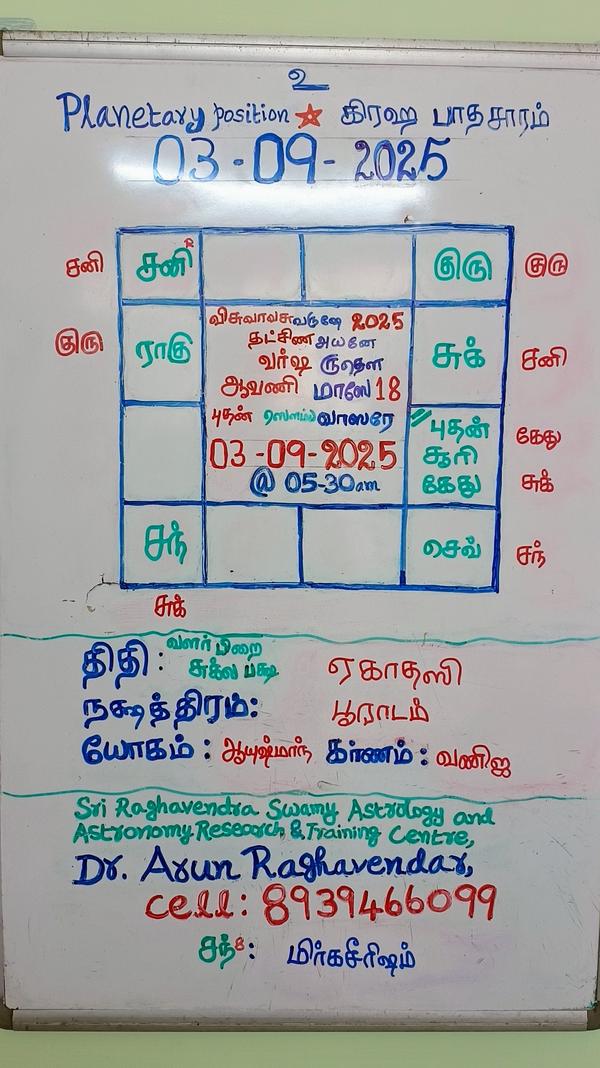 உ
Planetary position ★ கிரஹ பாதசாரம்
03-09-2025
சனி சனி R குரு குரு
விசுவாவசுவருஷே 2025
தட்சிண அயனே
குரு ராகு வர்ஷ ருதௌ சுக் சனி
ஆவணி மாஸே 18
புதன் வாஸரே புதன் கேது
03-09-2025 சூரி
@ 05-30am கேது சுக்
சந் செவ் சந்
சுக்
வளர் பிறை
திதி: சுக்ல பக்ஷ ஏகாதஸி
நக்ஷத்திரம்: பூராடம்
யோகம்: ஆயுஷ்மாந் கர்ணம்: வணிஜ
Sri Raghavendra Swamy Astrology and
Astronomy Research & Training Centre,
Dr. Arun Raghavendar,
cell: 8939466099
சந் 8: மிர்கசீரிஷம்